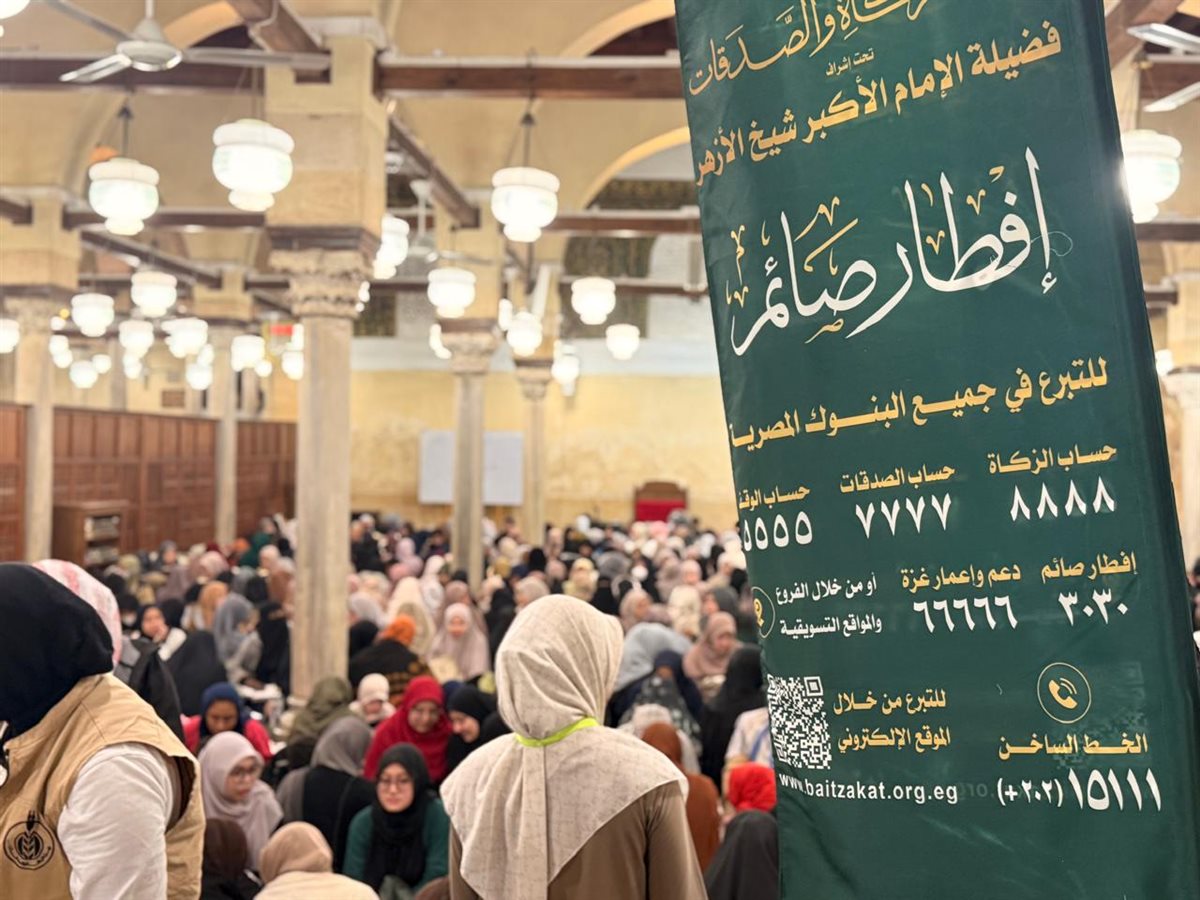 زكاة والصدقات
تحت إشراف
فضيلة الإمام الأكبر شيخ الأزهر
إفطار صائم
للتبرع في جميع البنوك المصرية
حساب الزكاة
٨٨٨٨
حساب الصدقات
٧٧٧٧
حساب الوقف
٥٥٥٥
إفطار صائم
٣٠٣٠
دعم وإعمار غزة
٦٦٦٦٦
أو من خلال الفروع
والمواقع التسويقية
للتبرع من خلال
الموقع الإلكتروني
www.baitzakat.org.eg
الخط الساخن
(+٢٠٢) ١٥١١١